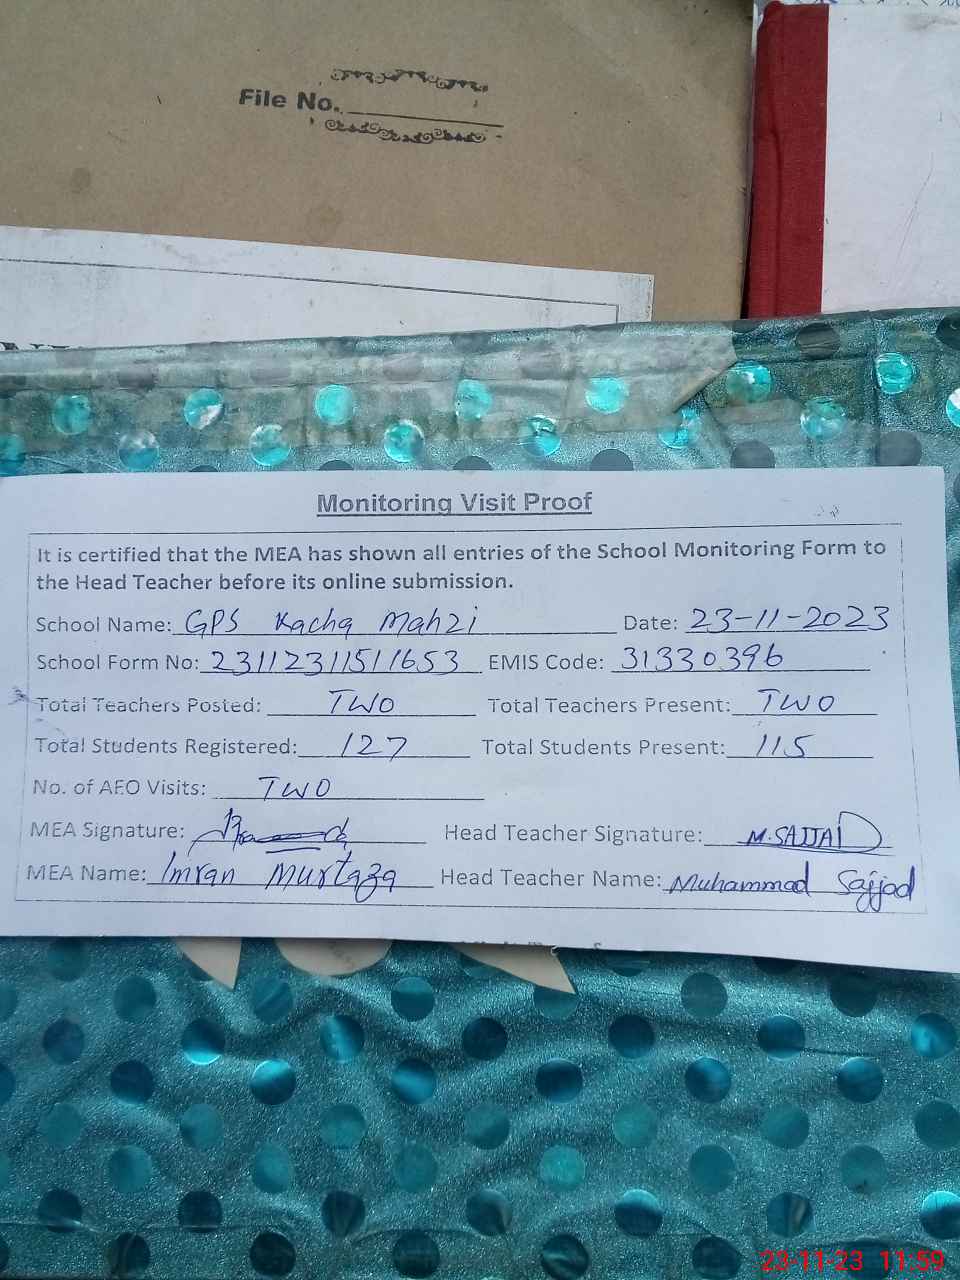 File No.
Monitoring Visit Proof
It is certified that the MEA has shown all entries of the School Monitoring Form to
the Head Teacher before its online submission.
School Name: GPS Kacha Mahzi Date: 23-11-2023
School Form No: 23112311511653 EMIS Code: 31330396
Total Teachers Posted: TWO Total Teachers Present: TWO
Total Students Registered: 127 Total Students Present: 115
No. of AEO Visits: TWO
MEA Signature: Head Teacher Signature: M.SAJJAD
MEA Name: Imran Murtaza Head Teacher Name: Muhammad Sajjad
23-11-23 11:59